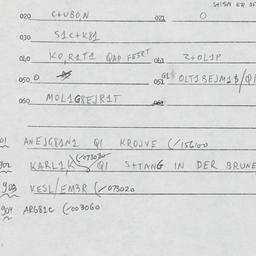 020 C+UBO,N 021 0
030 S1C+K81
040 KO,R1T1 QAP FEERT 041 Z+OL1P
050 0 051 G1 OLT1BEJM1$/Q1
060 MOL1G8EJR1T 061
01 ANEJG8AN1 Q1 KROJVE (/156100
902 KARL1K (/073030 Q1 S++ANG IN DER BRUNE
903 KESL/EM3R (/073020
904 ARG81C (/003060